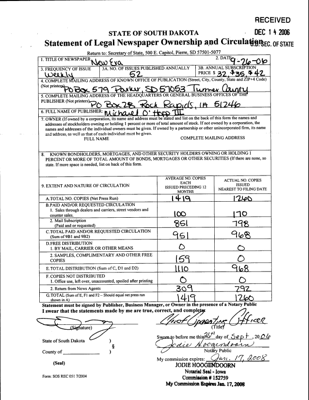 RECEIVED
DEC 14 2006
S.D. SEC. OF STATE
STATE OF SOUTH DAKOTA
Statement of Legal Newspaper Ownership and Circulation
Return to: Secretary of State, 500 E. Capitol, Pierre, SD 57501-5077
1. TITLE OF NEWSPAPER New Era
2. DATE 9-26-06
3. FREQUENCY OF ISSUE Weekly
3A. NO. OF ISSUES PUBLISHED ANNUALLY 52
3B. ANNUAL SUBSCRIPTION PRICE $ 32, $35, $42
4. COMPLETE MAILING ADDRESS OF KNOWN OFFICE OF PUBLICATION (Street, City, County, State and ZIP+4 Code)
(Not printers) PO Box 579 Parker, SD 57053 Turner County
5. COMPLETE MAILING ADDRESS OF THE HEADQUARTERS OR GENERAL BUSINESS OFFICES OF THE
PUBLISHER (Not printers) PO Box 28, Rock Rapids, IA 51246
6. FULL NAME OF PUBLISHER:
7. OWNER (If owned by a corporation, its name and address must be stated and also
FULL NAME
COMPLETE MAILING ADDRESS
8. KNOWN BONDHOLDERS, MORTGAGES, AND OTHER SECURITY HOLDERS OWNING OR HOLDING 1
PERCENT OR MORE OF TOTAL AMOUNT OF BONDS, MORTGAGES OR OTHER SECURITIES (If there are none, so
state. If more space is needed, list on back of this form.
9. EXTENT AND NATURE OF CIRCULATION
AVERAGE NO. COPIES EACH ISSUED PRECEDING 12 MONTHS
ACTUAL NO. COPIES ISSUED NEAREST TO FILING DATE
A. TOTAL NO. COPIES (Net Press Run) 1419 1260
B. PAID AND/OR REQUESTED CIRCULATION
1. Sales through dealers and carriers, street vendors and
counter sales. 100 170
2. Mail Subscription
(Paid and or requested) 851 798
C. TOTAL PAID AND/OR REQUESTED CIRCULATION
(Sum of 9B1 and 9B2) 951 968
D. FREE DISTRIBUTION
1. BY MAIL, CARRIER OR OTHER MEANS 0 0
2. SAMPLES, COMPLIMENTARY AND OTHER FREE
COPIES 159 0
E. TOTAL DISTRIBUTION (Sum of C, D1 and D2) 1110 968
F. COPIES NOT DISTRIBUTED
1. Office use, left over, unaccounted, spoiled after printing 0 0
2. Return from News Agents 309 292
G. TOTAL (Sum of E, F1 and F2 - Should equal net press run
shown in A) 1419 1260
Statement must be signed by Publisher, Business Manager, or Owner in the presence of a Notary Public
I swear that the statements made by me are true, correct, and complete
(Signature)
Chief Operating Officer
(Title)
State of South Dakota )
County of )
(Seal)
Sworn to before me this 26th day of Sept, 2006
Jodie Hoogendoorn
Notary Public
My commission expires: Jan. 17, 2008
JODIE HOOGENDOORN
Notarial Seal - Iowa
Commission # 152759
My Commission Expires Jan. 17, 2008